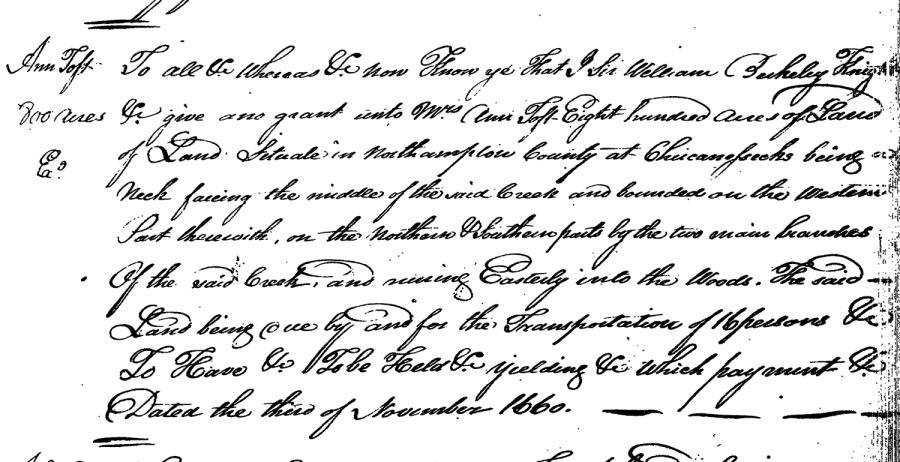 Ann Toft To all &c Whereas &c now Know ye That I Sir William Berkeley Knight
800 acres &c give and grant unto Mrs Ann Toft Eight hundred acres of Land
Exd of Land Situate in Northampton County at Chiccanessecks being a
Neck facing the middle of the said Creek and bounded on the Western
Part therewith, on the Northern & Southern parts by the two main branches
Of the said Creek, and runing Easterly into the Woods. The said
Land being due by and for the Transportation of 16 persons &c
To Have &c To be Held &c yielding &c which payment &c
Dated the third of November 1660.